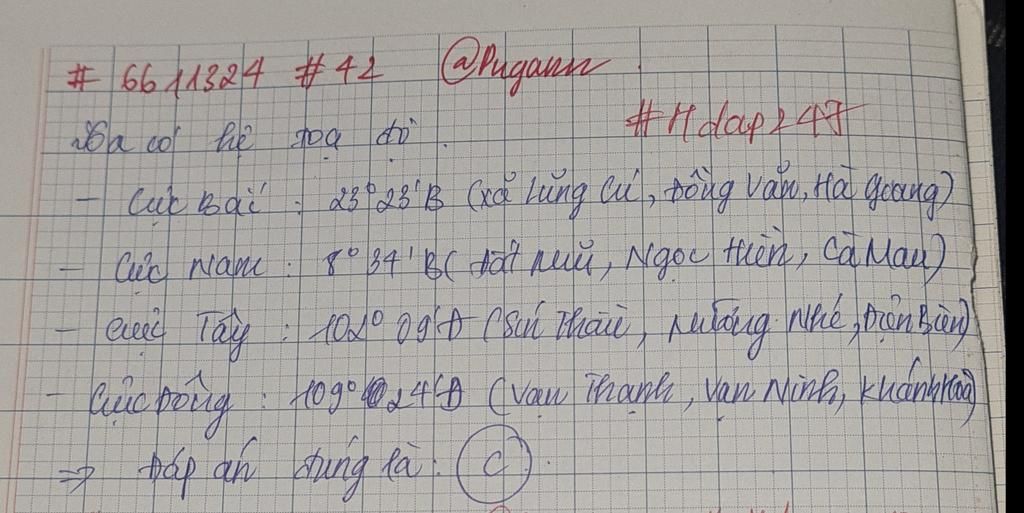 # 6611324 #42 @Pugann
#Hdap247
Ta có hệ toạ độ
- Cực Bắc : 23°23'B (xã Lũng Cú, Đồng Văn, Hà Giang)
- Cực Nam : 8°34'B (Đất Mũi, Ngọc Hiển, Cà Mau)
- Cực Tây : 102°09'Đ (Sín Thầu, Mường Nhé, Điện Biên)
- Cực Đông : 109°24'Đ (Vạn Thạnh, Vạn Ninh, Khánh Hoà)
⇒ Đáp án đúng là : C.